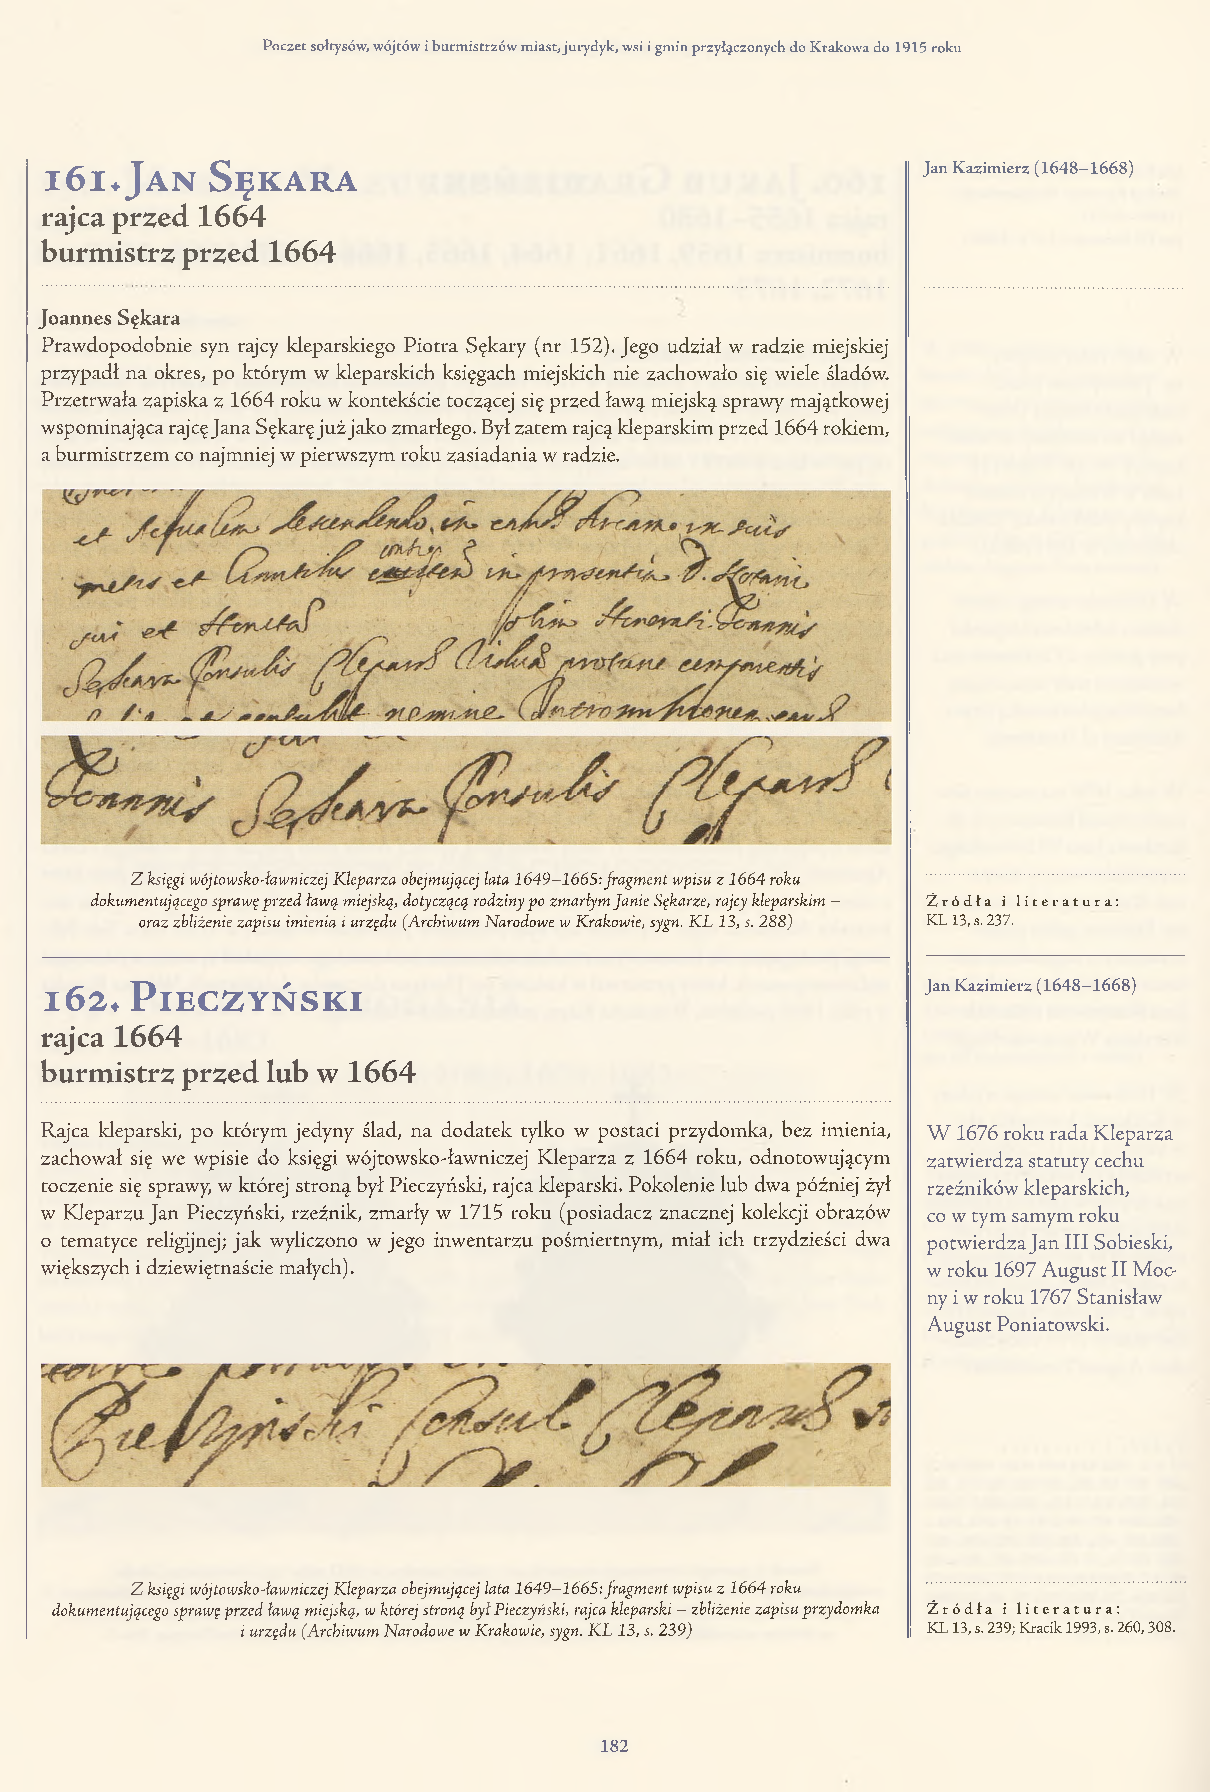 Poczet sołtysów, wójtów i burmistrzów miast, jurydyk, wsi i gmin przyłączonych do Krakowa do 1915 roku
161. Jan Sękara
rajca przed 1664
burmistrz przed 1664
Joannes Sękara
Prawdopodobnie syn rajcy kleparskiego Piotra Sękary (nr 152). Jego udział w radzie miejskiej
przypadł na okres, po którym w kleparskich księgach miejskich nie zachowało się wiele śladów.
Przetrwała zapiska z 1664 roku w kontekście toczącej się przed ławą miejską sprawy majątkowej
wspominająca rajcę Jana Sękarę już jako zmarłego. Był zatem rajcą kleparskim przed 1664 rokiem,
a burmistrzem co najmniej w pierwszym roku zasiadania w radzie.
et descendendo in in suis
et in praesentia D.
et Joannis
Consulis
nemine
Joannis Sekara Consulis Clepard
Z księgi wójtowsko-ławniczej Kleparza obejmującej lata 1649–1665: fragment wpisu z 1664 roku
dokumentującego sprawę przed ławą miejską, dotyczącą rodziny po zmarłym Janie Sękarze, rajcy kleparskim –
oraz zbliżenie zapisu imienia i urzędu (Archiwum Narodowe w Krakowie, sygn. KL 13, s. 288)
Jan Kazimierz (1648–1668)
Źródła i literatura:
KL 13, s. 237.
162. Pieczyński
rajca 1664
burmistrz przed lub w 1664
Rajca kleparski, po którym jedyny ślad, na dodatek tylko w postaci przydomka, bez imienia,
zachował się we wpisie do księgi wójtowsko-ławniczej Kleparza z 1664 roku, odnotowującym
toczenie się sprawy, w której stroną był Pieczyński, rajca kleparski. Pokolenie lub dwa później żył
w Kleparzu Jan Pieczyński, rzeźnik, zmarły w 1715 roku (posiadacz znacznej kolekcji obrazów
o tematyce religijnej; jak wyliczono w jego inwentarzu pośmiertnym, miał ich trzydzieści dwa
większych i dziewiętnaście małych).
Pieczynski Consul Clepard
Z księgi wójtowsko-ławniczej Kleparza obejmującej lata 1649–1665: fragment wpisu z 1664 roku
dokumentującego sprawę przed ławą miejską, w której stroną był Pieczyński, rajca kleparski – zbliżenie zapisu przydomka
i urzędu (Archiwum Narodowe w Krakowie, sygn. KL 13, s. 239)
Jan Kazimierz (1648–1668)
W 1676 roku rada Kleparza
zatwierdza statuty cechu
rzeźników kleparskich,
co w tym samym roku
potwierdza Jan III Sobieski,
w roku 1697 August II Moc-
ny i w roku 1767 Stanisław
August Poniatowski.
Źródła i literatura:
KL 13, s. 239; Kracik 1993, s. 260, 308.
182